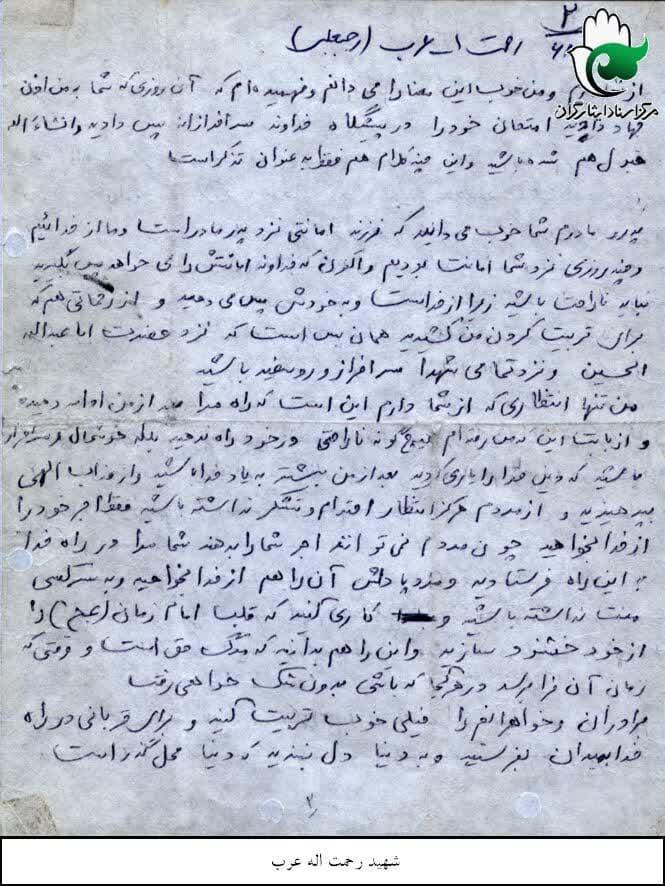 ۲
رحمت ا.. عرب (رجبعلی)
مرکز اسناد ایثارگران
و من خوب این معنا را می دانم و فهمیده ام که آن روزی که شما به من اذن
جهاد دادید امتحان خود را در پیشگاه خداوند سرافرازانه پس دادید و انشاءاله
قبول هم شده باشید و این چند کلام هم فقط به عنوان تذکر است
پدر مادرم شما خوب می دانید که فرزند امانتی نزد پدر مادر است و ما از خدائیم
و چند روزی نزد شما امانت بودیم و اکنون که خداوند امانتش را می خواهد پس بگیرد
نباید ناراحت باشید زیرا از خداست و به خودش پس می دهید و از زحماتی هم که
برای تربیت کردن من کشیدید همان بس است که نزد حضرت اباعبداله
الحسین و نزد تمامی شهدا سرافراز و روسفید باشید
من تنها انتظاری که از شما دارم این است که راه مرا بعد از من ادامه دهید
و از بابت این که من رفته ام هیچ گونه ناراحتی در خود راه ندهید بلکه خوشحال و سرافراز
باشید که دین خدا را یاری کردید بعد از من بیشتر به یاد خدا باشید و از عذاب الهی
بپرهیزید و از مردم هرگز انتظار احترام و تشکر نداشته باشید فقط اجر خود را
از خدا بخواهید چون مردم نمی توانند اجر شما را بدهند شما مرا در راه خدا
به این راه فرستادید و مزد پاداش آن را هم از خدا بخواهید و به سر کسی
منت نداشته باشید و کاری کنید که قلب امام زمان (عج) را
از خود خشنود سازید و این را هم بدانید که مرگ حق است و وقتی که
زمان آن فرا رسد در هر کجا که باشی بدون شک خواهی رفت
برادران و خواهرانم را خیلی خوب تربیت کنید و برای قربانی در راه
خدا به میدان بفرستید و به دنیا دل نبندید که دنیا محل گذر است
۲
شهید رحمت اله عرب